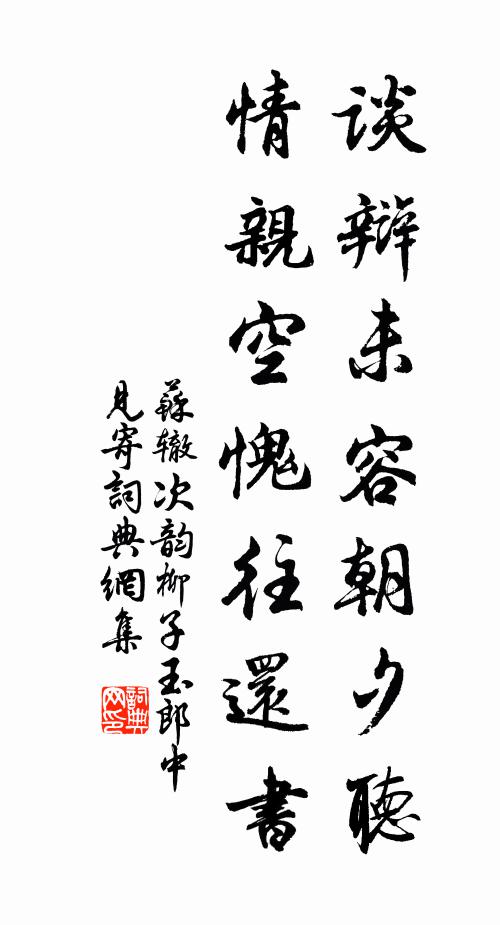 谈辩未容朝夕聽
情親空愧往還書
蘇辙次韵柳子玉郎中
見寄詞典網集
詞典
网印